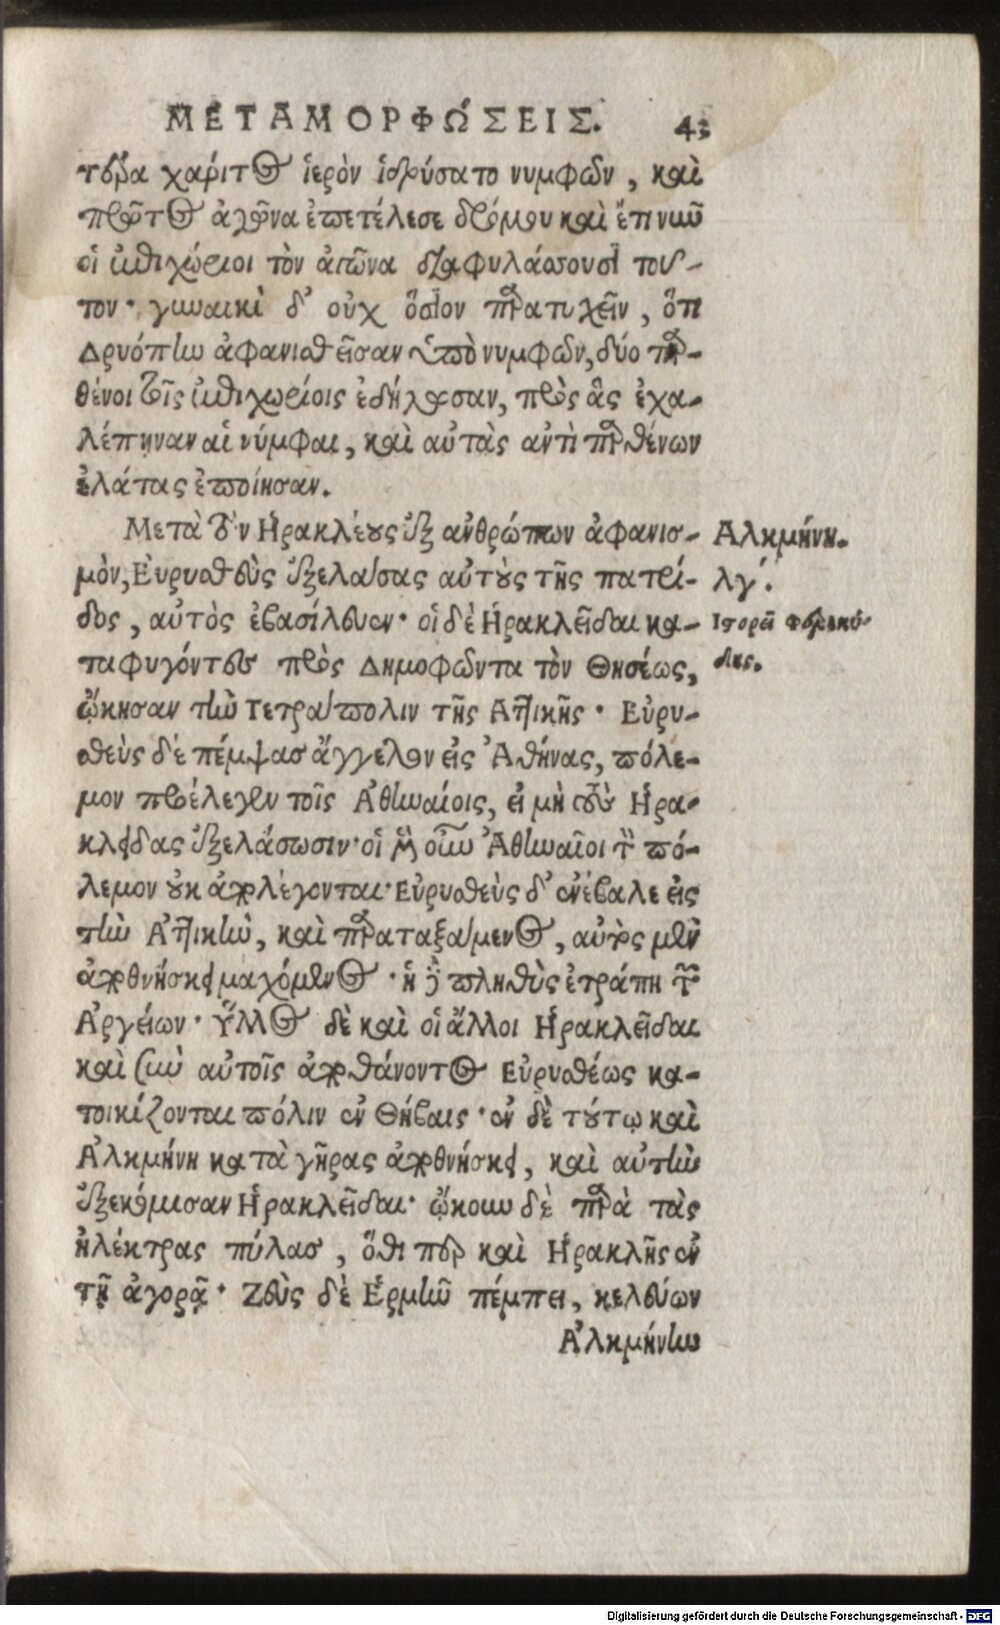 ΜΕΤΑΜΟΡΦΏΣΕΙΣ. 43
τεῦρα χάριτος ἱερὸν ἱδρύσατο νυμφῶν, καὶ
πρῶτος ἀγῶνα ἐπετέλεσε δρόμου καὶ ἔτι νιῦ
οἱ ἐπιχώριοι τὸν ἀγῶνα διαφυλάσσουσι τοῦ-
τον· γυναικὶ δ' οὐχ ὅσιον παρατυχεῖν, ὅτι
Δρυόπίω ἀφανισθεῖσαν ὑπὸ νυμφῶν, δύο παρ-
θένοι τοῖς ἐπιχωρίοις ἐδήλωσαν, πρὸς ἃς ἐχα-
λέπηναν αἱ νύμφαι, καὶ αὐτὰς ἀντὶ παρθένων
ἐλάτας ἐποίησαν.
Μετὰ τὸν Ἡρακλέους ἐξ ἀνθρώπων ἀφανισ-
μὸν, Εὐρυσθεὺς ἐξελάσας αὐτοὺς τῆς πατρί-
δος, αὐτὸς ἐβασίλευεν· οἱ δὲ Ἡρακλεῖδαι κα-
ταφυγόντες πρὸς Δημοφῶντα τὸν Θησέως,
ᾤκησαν τὴν Τετράπολιν τῆς Ἀττικῆς· Εὐρυ-
σθεὺς δὲ πέμψας ἄγγελον εἰς Ἀθήνας, πόλε-
μον προέλεγεν τοῖς Ἀθηναίοις, εἰ μὴ τοὺς Ἡρα-
κλείδας ἐξελάσωσιν· οἱ μὲν οὖν Ἀθηναῖοι τὸν πό-
λεμον οὐκ ἀπολέγονται· Εὐρυσθεὺς δ' ἐνέβαλε εἰς
τὴν Ἀττικὴν, καὶ παραταξάμενος, αὐτὸς μὲν
ἀποθνήσκει μαχόμενος· ἡ δὲ πληθὺς ἐτράπη τῶν
Ἀργείων· Ὕλλος δὲ καὶ οἱ ἄλλοι Ἡρακλεῖδαι
καὶ σὺν αὐτοῖς ἀποθάνοντος Εὐρυσθέως κα-
τοικίζονται πόλιν ἐν Θήβαις· ἐν δὲ τούτῳ καὶ
Ἀλκμήνη κατὰ γῆρας ἀποθνήσκει, καὶ αὐτὴν
ἐξεκόμισαν Ἡρακλεῖδαι· ᾤκουν δὲ παρὰ τὰς
ἠλέκτρας πύλας, ὅθι περ καὶ Ἡρακλῆς ἐν
τῇ ἀγορᾷ· Ζεὺς δὲ Ἑρμῆν πέμπει, κελεύων
Ἀλκμήνην
Ἀλκμήνη.
λγ΄.
Ἱστορεῖ Φερεκύ-
δης.
Digitalisierung gefördert durch die Deutsche Forschungsgemeinschaft - DFG